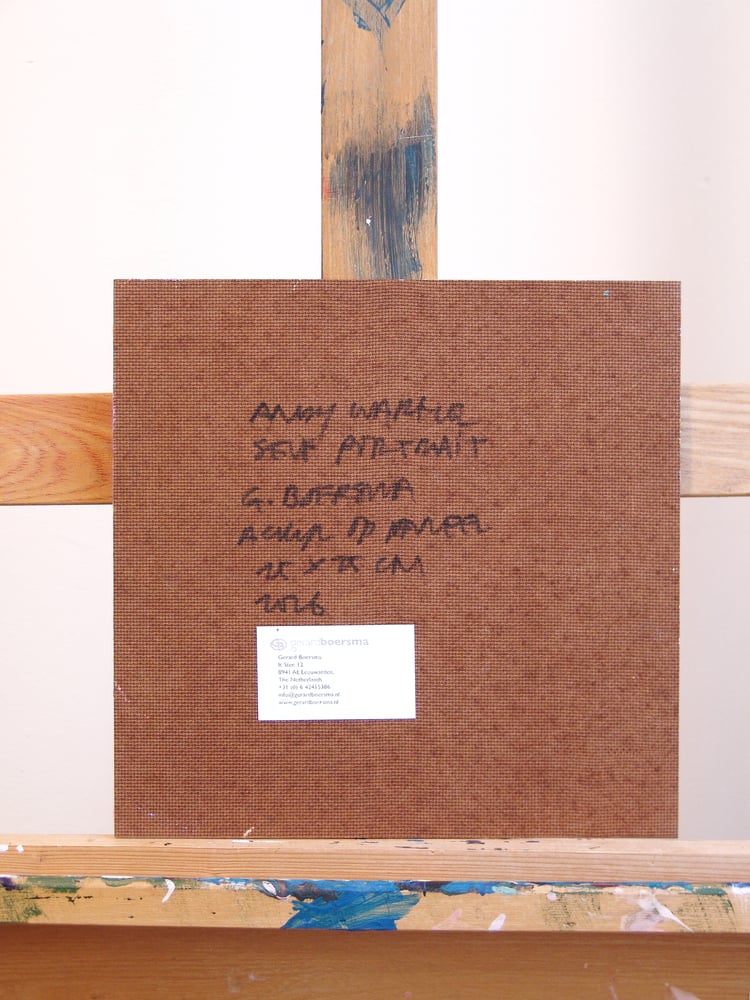 ANDY WARHOL
SELF PORTRAIT
G. BOERSMA
ACRYL OP PANEEL
25 X 25 CM
2026
gerardboersma
Gerard Boersma
The Netherlands
info@gerardboersma.nl
www.gerardboersma.nl